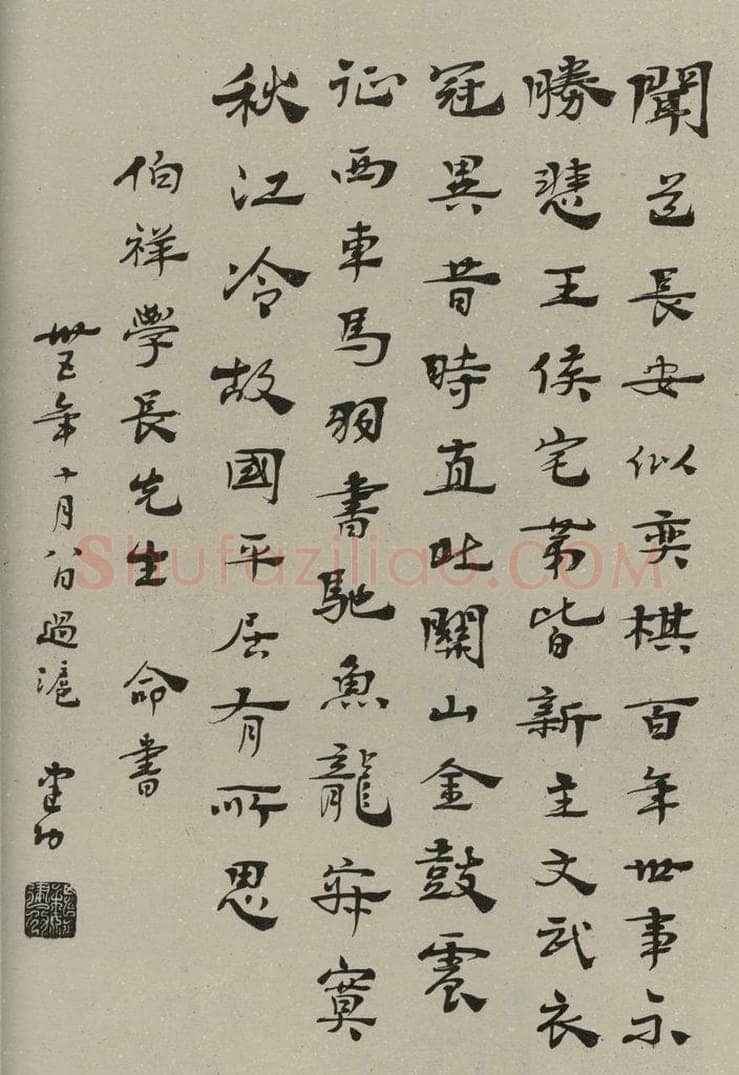 聞道長安似奕棋百年世事不
勝悲王侯宅第皆新主文武衣
冠異昔時直北關山金鼓震
征西車馬羽書馳魚龍寂寞
秋江冷故國平居有所思
伯祥學長先生 命書
卅五年十月八日過滬 建功
Shufaziliao.COM